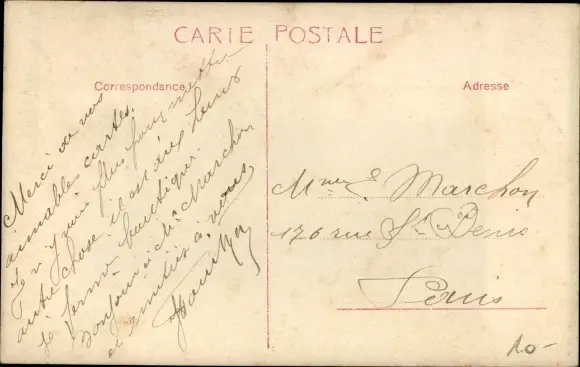 CARTE POSTALE
Correspondance
Adresse
Merci de vos
aimables cartes.
Je n'y vois plus pour mettre
autre chose il est dix heures
je ferme boutique.
Bonjour à Mr Marchon
et amitiés à vous,
Mme E. Marchon
176 rue St Denis
Paris
10-